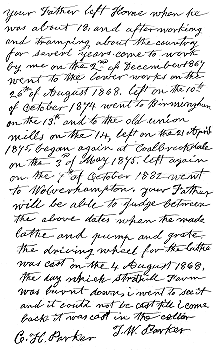 Your Father left Home when he
was about 18 and after working
and tramping about the country
for several years come to work
by me on the 2nd of December 1867
went to the lower works on the
26th of August 1868. left on the 10th
of October 1874 went to Birmingham
on the 13th and to the old union
mills on the 14, left on the 21 April
1875 began again at Coalbrookdale
on the 3rd of May 1875. left again
on the 7th of October 1882 went
to Wolverhampton, your Father
will be able to Judge between
the above dates when he made
lathe and pump and grate
the driving wheel for the lathe
was cast on the 4 August 1868,
the day which Farm
was burnt down, i went to see it
and it could not be cast till i come
back it was cast in the
C. H. Parker J. W. Parker